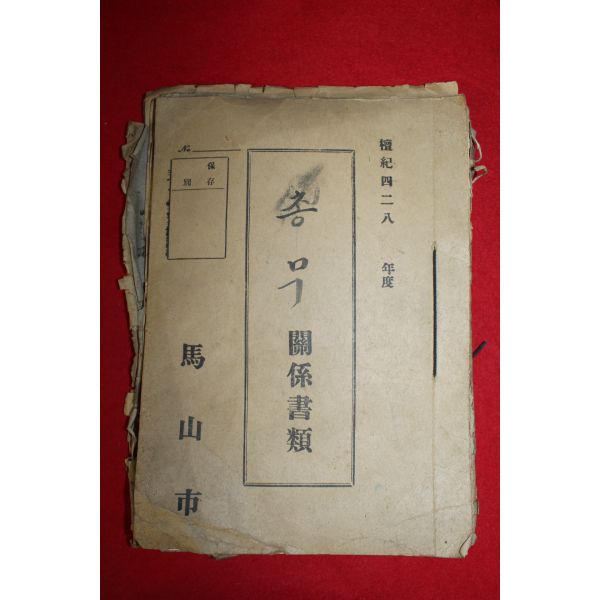 檀紀四二八 年度
총무 關係書類
No.
保存別
馬山市